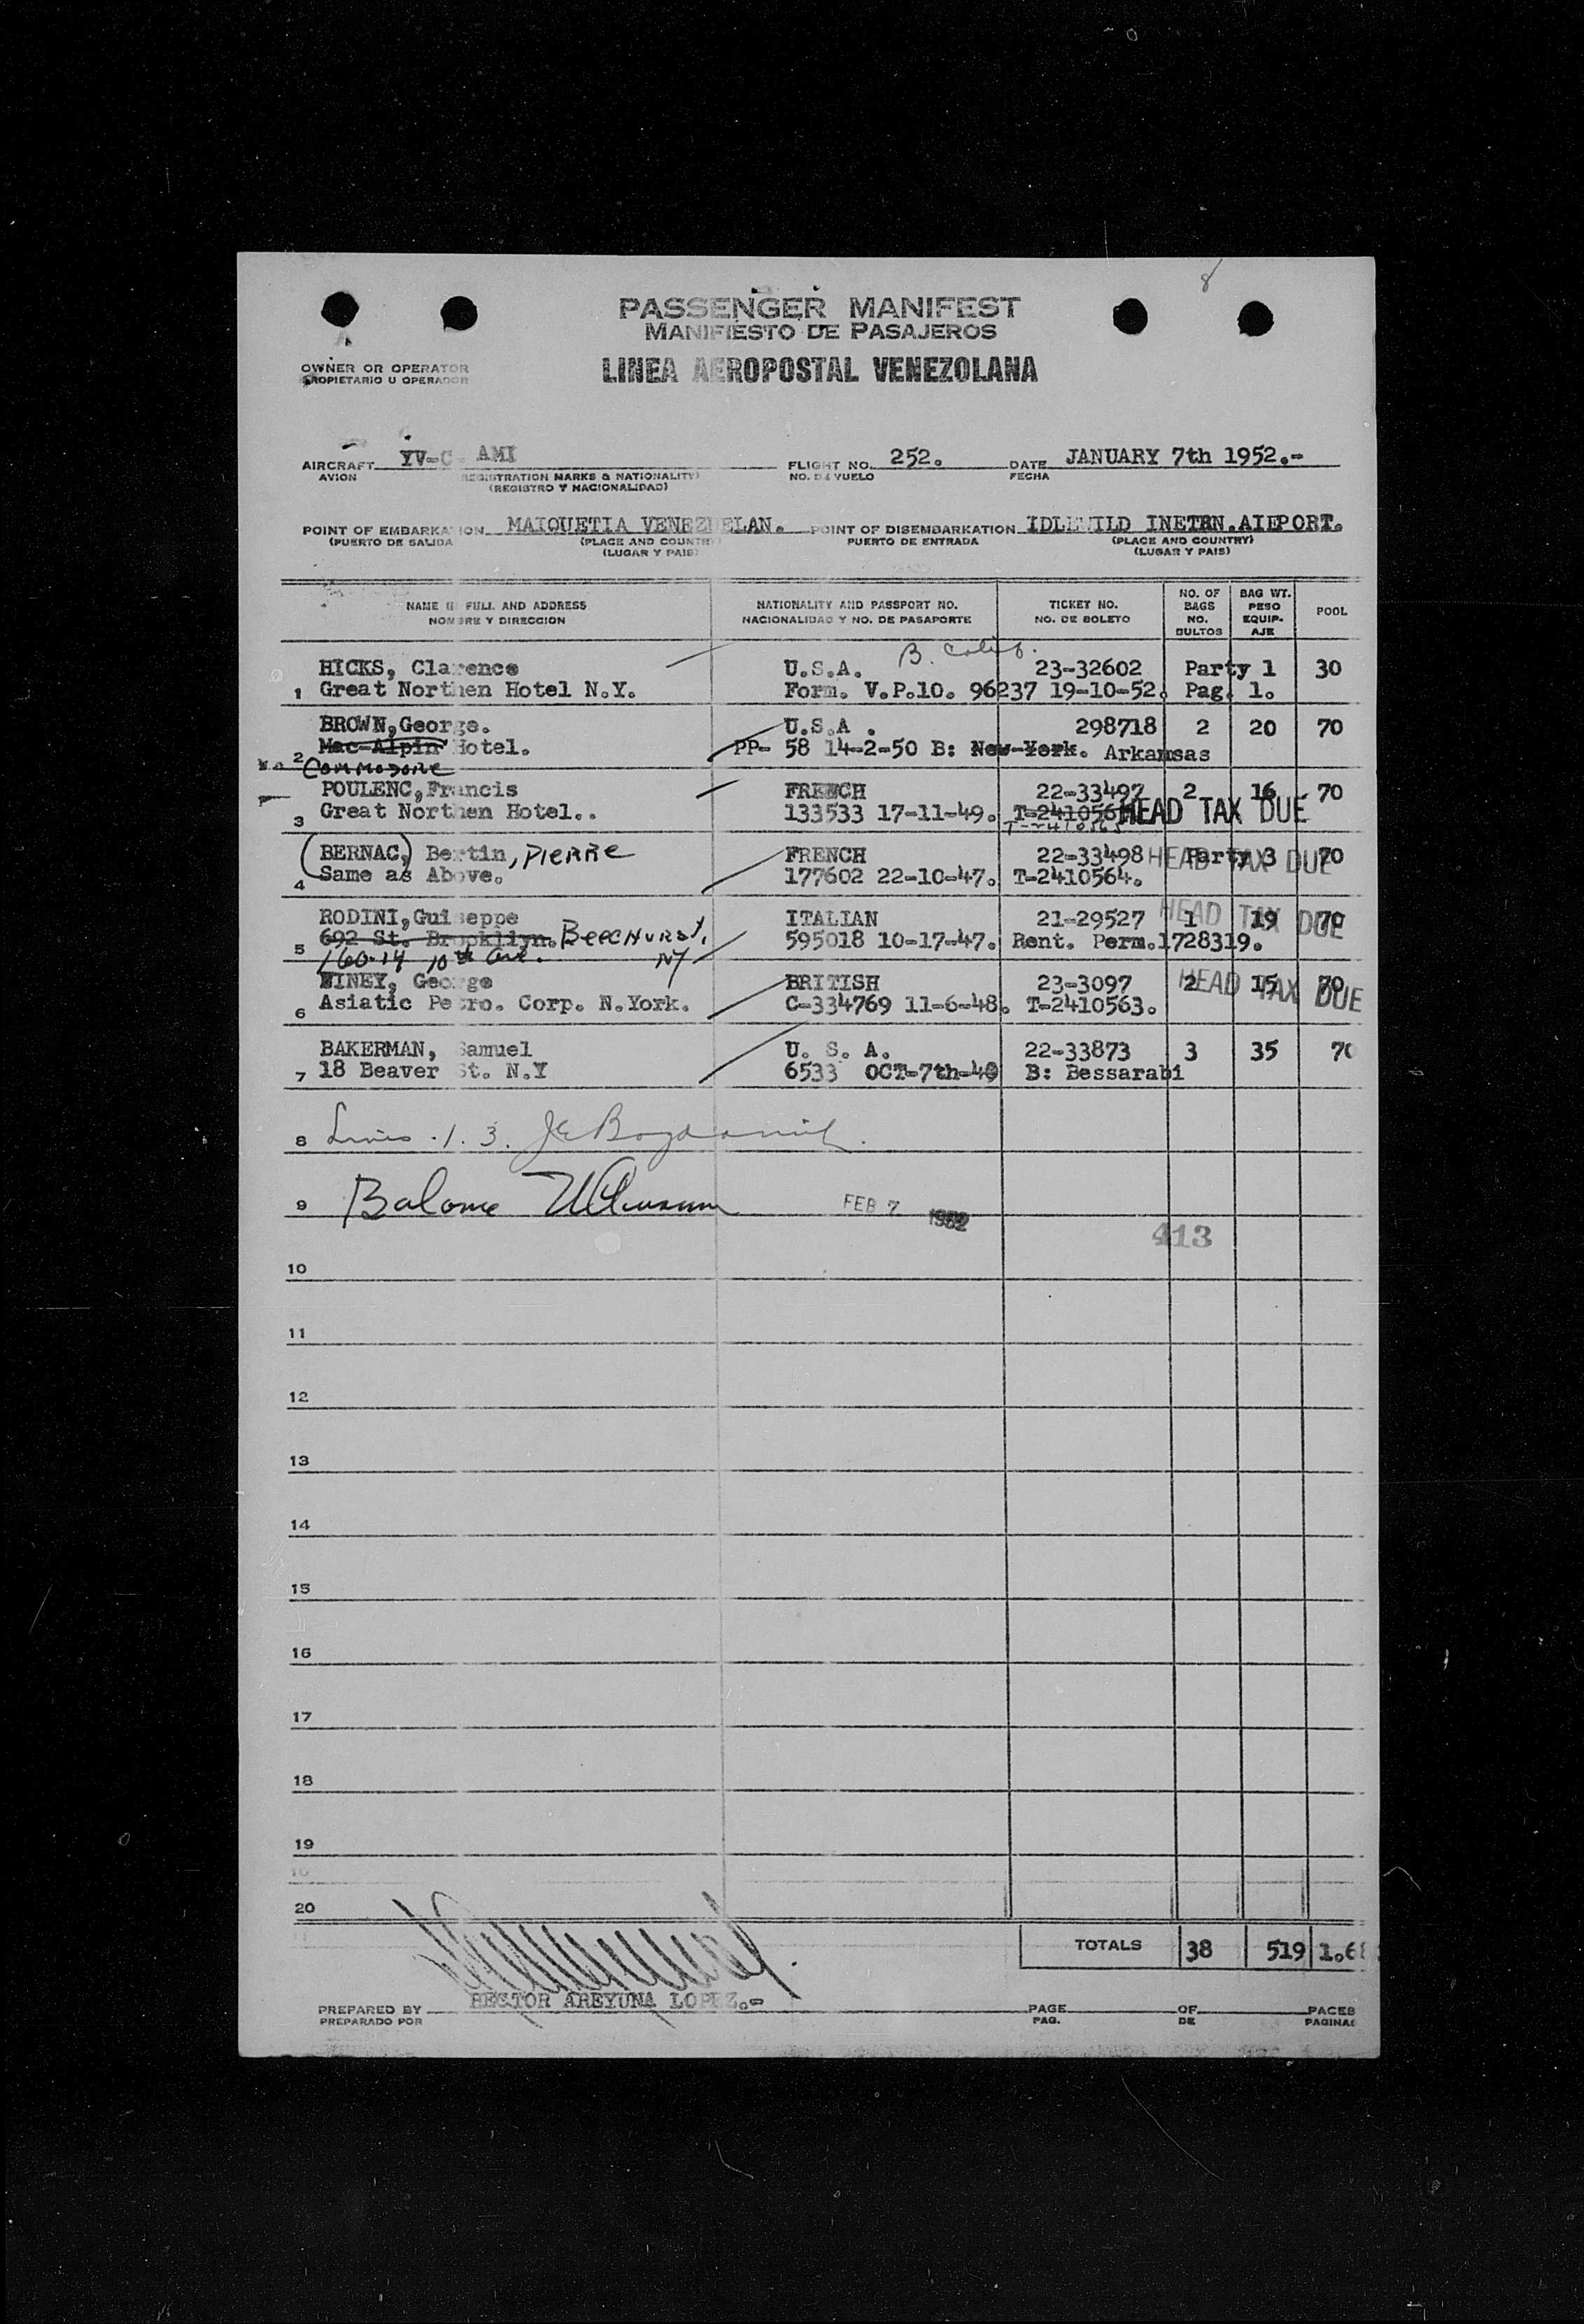 8
PASSENGER MANIFEST
MANIFIESTO DE PASAJEROS
OWNER OR OPERATOR
PROPIETARIO U OPERADOR
LINEA AEROPOSTAL VENEZOLANA
AIRCRAFT YV-C- AMI FLIGHT NO. 252. DATE JANUARY 7th 1952.-
AVION REGISTRATION MARKS & NATIONALITY) NO. DE VUELO FECHA
(REGISTRO Y NACIONALIDAD)
POINT OF EMBARKATION MAIQUETIA VENEZUELAN. POINT OF DISEMBARKATION IDLEWILD INETRN.AIEPORT.
(PUERTO DE SALIDA (PLACE AND COUNTRY) PUERTO DE ENTRADA (PLACE AND COUNTRY)
(LUGAR Y PAIS) (LUGAR Y PAIS)
NAME IN FULL AND ADDRESS NATIONALITY AND PASSPORT NO. TICKET NO. NO. OF BAGS BAG WT. POOL
NOMBRE Y DIRECCION NACIONALIDAD Y NO. DE PASAPORTE NO. DE BOLETO NO. BULTOS PESO EQUIP-AJE
B. Calif.
HICKS, Clarence U.S.A. 23-32602 Party 1 30
1 Great Northen Hotel N.Y. Form. V.P.10. 96237 19-10-52. Pag. 1.
BROWN,George. U.S.A . 298718 2 20 70
2 Mac-Alpin Hotel. PP- 58 14-2-50 B: New-York. Arkansas
COMMODORE
POULENC,Francis FRENCH 22-33497 2 16 70
3 Great Northen Hotel.. 133533 17-11-49. T-241056 HEAD TAX DUE
T-2410565
(BERNAC,) Bertin, PIERRE FRENCH 22-33498 Party 3 70 HEAD TAX DUE
4 Same as Above. 177602 22-10-47. T-2410564.
RODINI,Guiseppe ITALIAN 21-29527 1 19 70 HEAD TAX DUE
5 692 St. Brookllyn. BEECHURST, 595018 10-17-47. Rent. Perm.1728319.
160-14 10th Ave. NY
WINEY, George BRITISH 23-3097 2 15 70 HEAD TAX DUE
6 Asiatic Petro. Corp. N.York. C-334769 11-6-48. T-2410563.
BAKERMAN, Samuel U. S. A. 22-33873 3 35 70
7 18 Beaver St. N.Y 6533 OCT-7th-49 B: Bessarabi
8 Lines 1. 3.
9 Balance FEB 7 1952
413
10
11
12
13
14
15
16
17
18
19
20
TOTALS 38 519 1.6
PREPARED BY HECTOR AREYUNA LOPEZ.- PAGE OF PAGES
PREPARADO POR PAG. DE PAGINAS